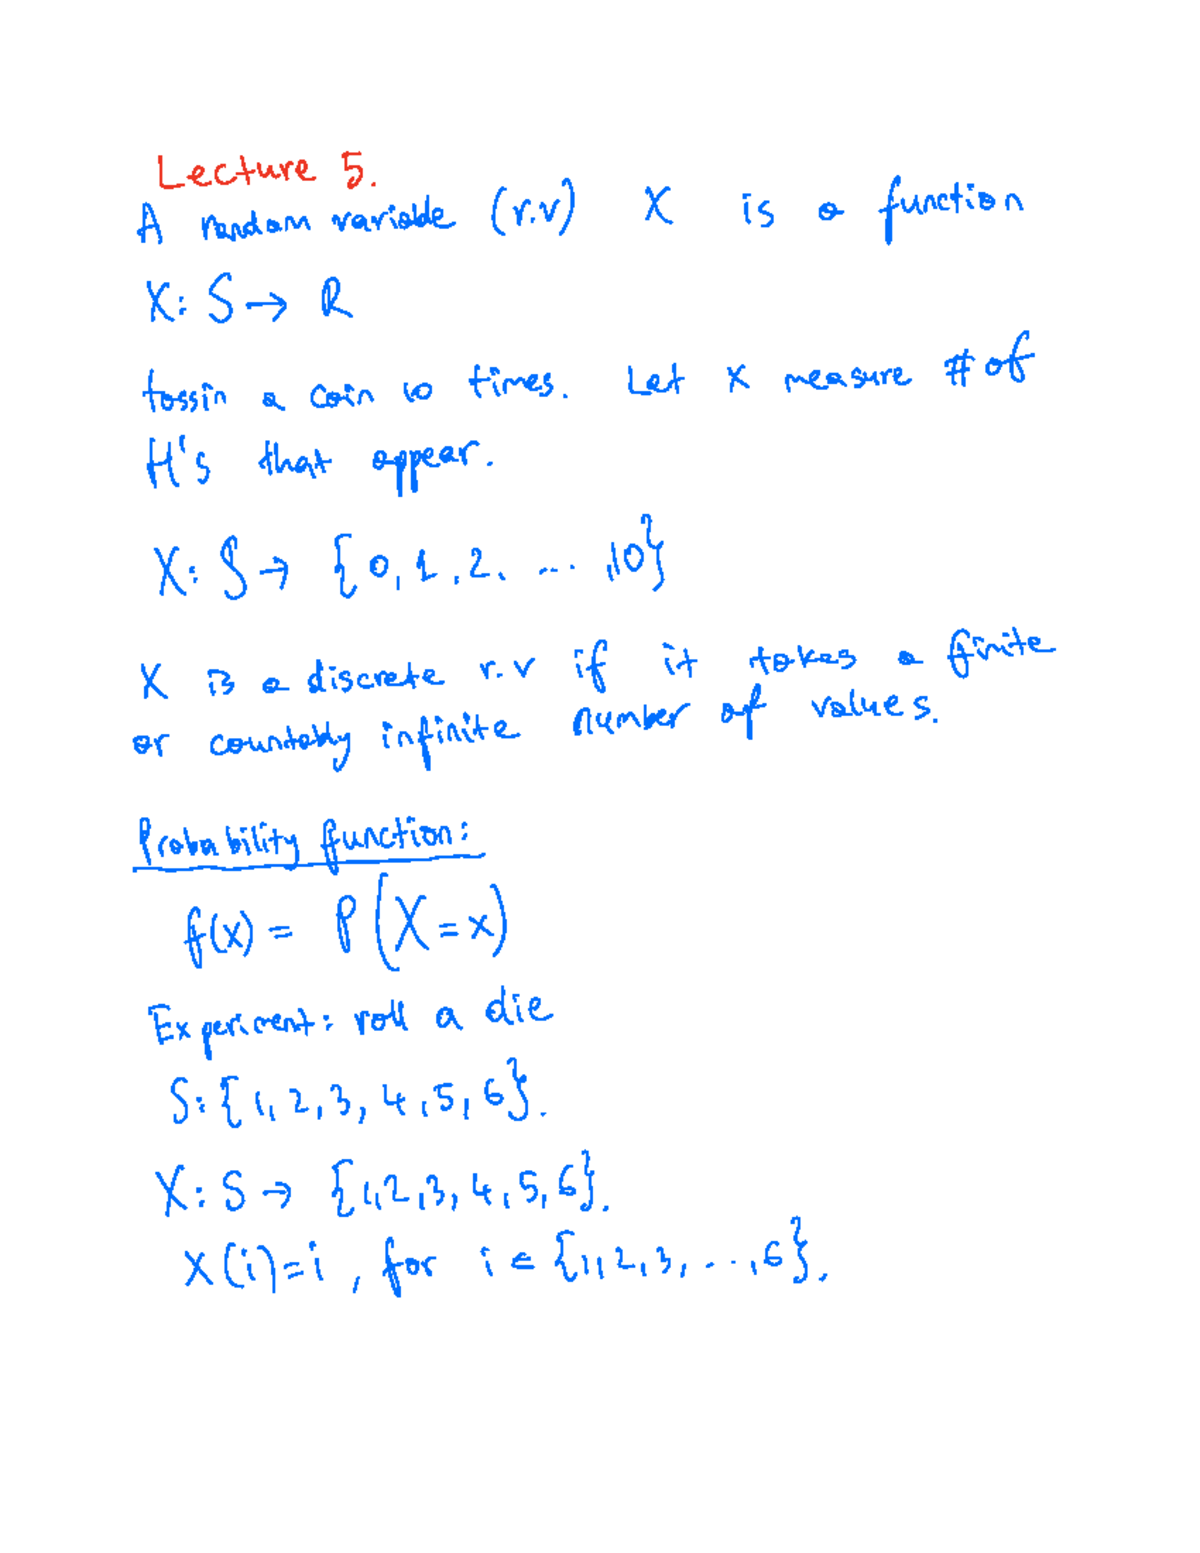 Lecture 5.
A random variable (r.v) X is a function
X: S → R
tossin a coin 10 times. Let X measure # of
H's that appear.
X: S → {0, 1, 2, ... ,10}
X is a discrete r.v if it takes a finite
or countably infinite number of values.
Probability function:
f(x) = P(X=x)
Experiment: roll a die
S: {1, 2, 3, 4, 5, 6}.
X: S → {1,2,3,4,5,6}.
X(i)=i, for i ∈ {1,2,3,...,6}.